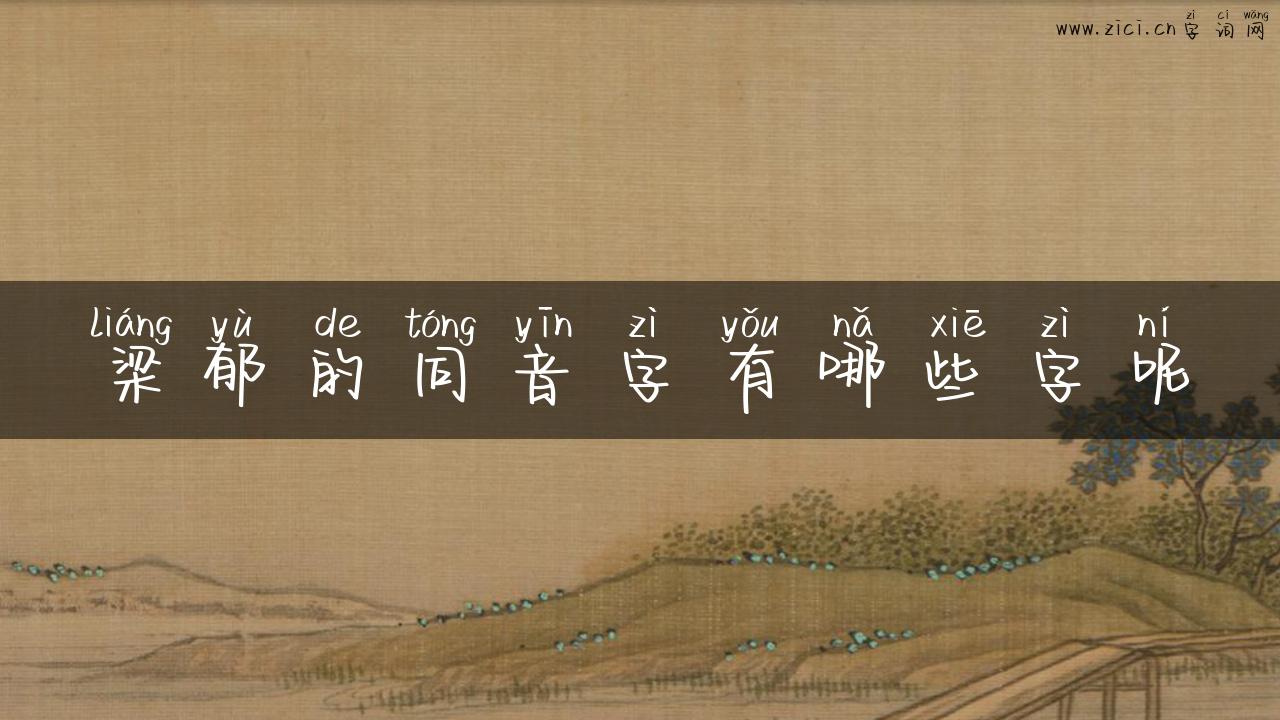 zì cí wǎng
www.zici.cn字词网
liáng yù de tóng yīn zì yǒu nǎ xiē zì ní
梁郁的同音字有哪些字呢